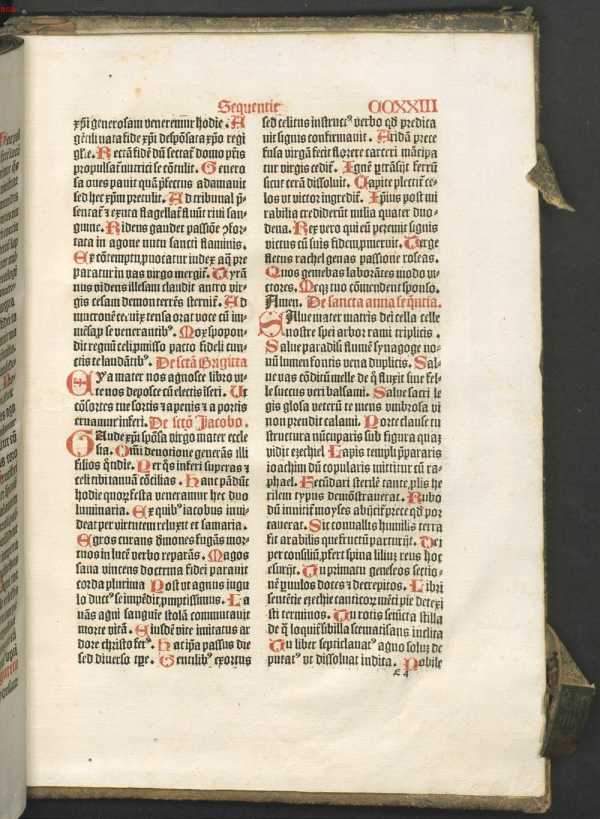 Sequentie CCXXIII
xp̄i generosam veneremur hodie. A
gētili vara fide xp̄i despōsata xp̄o regi
gl̄ie. Rectā fidē dū sectat᷑ domo p̄ris
propulsat᷑ nutrici se cōtulit. Genero
sa oues pauit quā p̄fectus adamauit
sed hec xp̄m pretulit. Ad tribunal p̄
sentat᷑ ⁊ exuta flagellat᷑ fluūt riui san-
guine. Ridens gaudet passiōe ꝯfor-
tata in agone nutu sancti flaminis.
Ex cōtemptu, vocatur index aq̄ pre
paratur in vas virgo mergit᷑. Tyrā
nus videns illesam claudit antro vir-
gis cesam demon terrēs sternit᷑. Ad
mucronē te, nix tensa orat voce cū im
mēsa ꝓ se venerantibꝰ. Mox spopon-
dit regnū celi ꝓmisso pacto fideli cun-
ctis te laudātibꝰ. De sctā Brigitta
Eya mater nos agnosce libro vi-
te nos deposce cū electis īseri. Ut
cōsortes tue sortis ⁊ a penis ⁊ a portis
eruamur inferi. De sctō Jacobo.
Gaude xp̄i spōsa virgo mater eccle
sia. Om̄i deuotione generās illi
filios q̄tidie. Per q̄s inferi superas ⁊
celi tibi tannū cōcilias. Hanc pādūt
hodie quoꝝ festa veneramur hec duo
luminaria. Ex quibꝰ iacobus inui-
deat per virtutem reluxit et samaria.
Egros curans demones fugās mor-
tuos in lucē verbo reparās. Magos
sana vincens doctrina fidei parauit
corda plurima Post vt agnus iugu
lo ductꝰ se impēdit ꝓmptissimus. La
uās agni sanguīe stolā commutauit
morte vitā. Eiusdē vite imitatus ar
dore christoferꝰ. Hac ip̄a passus die
sed diuerso tp̄e. Gentilibꝰ exortus
sed celitus instructꝰ verbo qd̄ predica
uit signis confirmauit. Aridā prece
fusa virgā fecit florere carceri mācipa
tur virgis cedit᷑. Ignē ꝑtrāsijt ferrū
sicut cerā dissoluit. Capite plectit᷑ ce-
los vt victor ingredit᷑. Ip̄ius post mi
rabilia crediderūt milia quater duo-
dena. Rex vero qui eū peremit signis
victus cū suis fidem ꝓmeruit. Terge
fletus rachel genas passione roseas.
Quos gemebas laborātes modo vi-
ctores. Meq̄ mō cōmendent sponso.
Amen. De sancta anna seq̄ntia.
Salue mater matris dei cella celle
nostre spei arbor rami triplicis.
Salue paradisi flumē synagoge no-
uū lumen fontis vena duplicis. Sal-
ue vas cōditū melle de q̄ fluxit sine fel-
le succus veri balsami. Salue sacri le
gis glosa veterū te mens vmbrosa vi
non prendit calami. Porte clause tu
structura nūcuparis sub figura quaꝫ
vidit ezechiel Lapis templi p̄pararis
ioachim dū copularis mittitur cū ra-
phael. Fecūdari sterilē tante, plis he
rilem typus demōstrauerat. Rubo
dum innitit᷑ moyses abijcit᷑ prece qd̄ por
tauerat. Sit conuallis humilis terra
fit arabilis que fructū parturijt. Uei
per consiliū ꝓfert spina liliuꝫ reus hoc
esurijt. Tu primatu geneseos sectis-
nē puulos doces ⁊ decrepitos. Libri
sentētie ezechie canticoꝝ mēti pie detexi
sti terminos. Tu totis seiūcta stilla
de q̄ loquit᷑ sibilla stematisans inclita
Tu liber septiclauatꝰ agno soluēde
putatꝰ vt dissoluat indita. Nobile